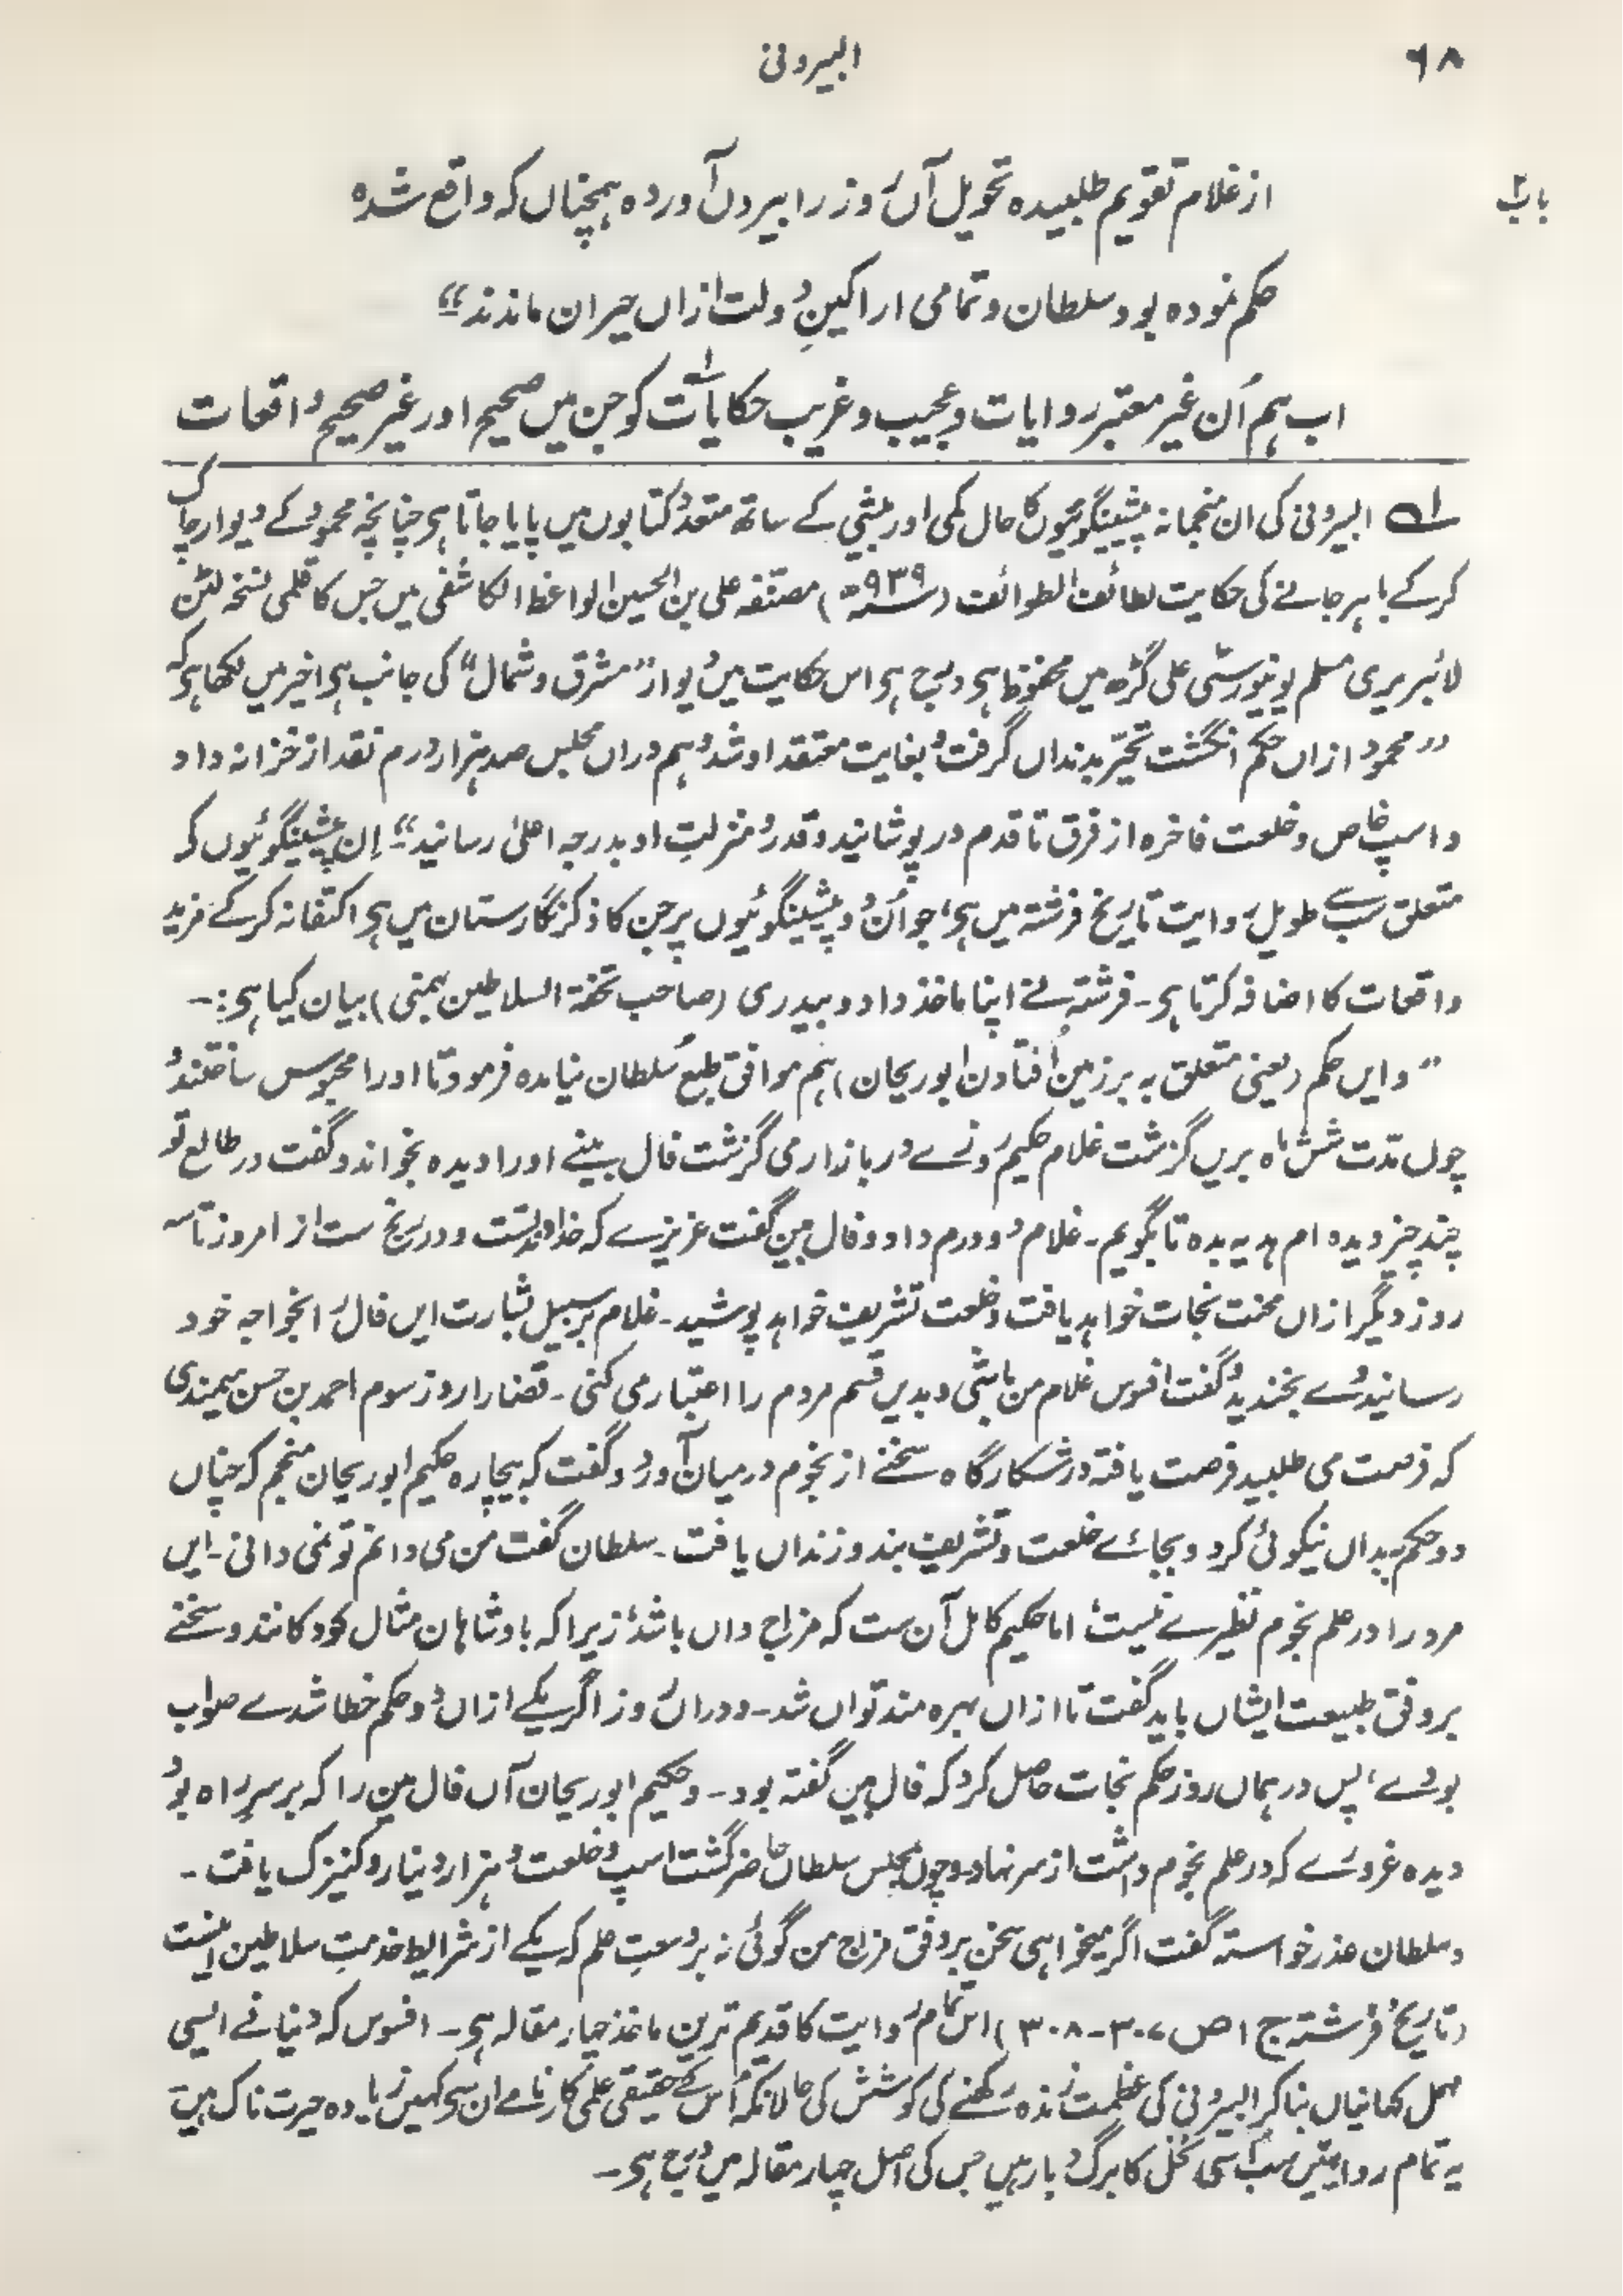 ۶۸
البیرونی
باب۲
از غلام تقویم طلبیدہ تحویل آں روز را بیروں آوردہ ہمچناں کہ واقع شدہ
حکم نمودہ بود سلطان و تمامی اراکینِ دولت ازاں حیران ماندند“
اب ہم اُن غیر معتبر روایات و عجیب و غریب حکایات۱ کو جن میں صحیح اور غیر صحیح واقعات
۱؎ البیرونی کی ان منجمانہ پیشینگوئیوں کا حال کمی اور بیشی کے ساتھ متعدد کتابوں میں پایا جاتا ہی چنانچہ محمود کے دیوار چاک
کرکے باہر جانے کی حکایت لطائف الطوائف (سنہ ۹۳۹ھ) مصنفہ علی بن الحسین الواعظ الکاشفی میں جس کا قلمی نسخہ لٹن
لائبریری مسلم یونیورسٹی علی گڑھ میں محفوظ ہی درج ہی اس حکایت میں دیوار ”مشرق و شمال“ کی جانب ہی اخیر میں لکھا ہی کہ
”محمود ازاں حکم انگشت تحیّر بدنداں گرفت و بغایت معتقد او شد و ہم دراں مجلس صد ہزار درم نقد از خزانہ داد
و اسپ خاص و خلعت فاخرہ از فرق تا قدم در پوشانید و قدر و منزلتِ او بدرجہ اعلیٰ رسانید“ اِن پیشینگوئیوں کے
متعلق سب سے طویل روایت تاریخ فرشتہ میں ہی، جو اُن دو پیشینگوئیوں پر جن کا ذکر نگارستان میں ہی اکتفا نہ کرکے مزید
واقعات کا اضافہ کرتا ہی۔ فرشتہ نے اپنا ماخذ داود بیدری (صاحب تحفۃ السلاطین بہمنی) بیان کیا ہی:۔
”و ایں حکم (یعنی متعلق بہ بر زمین اُفتادن ابوریحان) ہم موافق طبعِ سلطان نیامدہ فرمود تا اورا محبوس ساختند و
چوں مدّت شش ماہ بریں گزشت غلام حکیم روزے در بازار می گزشت فال بینے اورا دیدہ بخواند و گفت در طالع تو
چند چیز دیدہ ام ہدیہ بدہ تا بگویم۔ غلام دو درم داد و فال بین گفت عزیزے کہ خداوند تست و در رنج ست از امروز تا سہ
روز دیگر ازاں محنت نجات خواہد یافت و خلعت تشریف خواہد پوشید۔ غلام بر سبیل بشارت ایں فال را بخواجہ خود
رسانید وے بخندید و گفت افسوس غلام من باشی و بدیں قسم مردم را اعتبار می کنی۔ قضارا روز سوم احمد بن حسن میمندی
کہ فرصت می طلبید فرصت یافتہ در شکارگاہ سخنے از نجوم درمیان آورد و گفت کہ بیچارہ حکیم ابوریحان منجم کہ چناں
دو حکم بداں نیکوئی کرد و بجائے خلعت و تشریف بند و زنداں یافت۔ سلطان گفت من می دانم تو نمی دانی۔ ایں
مرد را در علم نجوم نظیرے نیست، اما حکیم کامل آن ست کہ مزاج داں باشد، زیرا کہ بادشاہان مثال کودکانند و سخنے
بر وفق طبیعت ایشاں باید گفت تا ازاں بہرہ مند تواں شد۔ و دراں روز اگر یکے ازاں دو حکم خطا شدے صواب
بودے، پس در ہماں روز حکم نجات حاصل کرد کہ فال بین گفتہ بود۔ و حکیم ابوریحان آں فال بین را کہ بر سرِ راہ بود
دیدہ غرورے کہ در علم نجوم داشت از سر نہاد و چوں بمجلس سلطان حاضر گشت اسپ و خلعت و ہزار دینار و کنیزک یافت۔
و سلطان عذر خواستہ گفت اگر میخواہی سخن بر وفق مزاج من گوئی نہ بر وسعتِ علم کہ یکے از شرایط خدمتِ سلاطین اینست
(تاریخ فرشتہ ج ۱ ص ۳۰۷-۳۰۸) اس تمام روایت کا قدیم ترین ماخذ چہار مقالہ ہی۔ افسوس کہ دنیا نے ایسی
مہمل کہانیاں بنا کر البیرونی کی عظمت زندہ رکھنے کی کوشش کی حالانکہ اُس کے حقیقی علمی کارنامے ان سی کہیں زیادہ حیرت ناک ہیں
یہ تمام روایتیں سب اُسی نخل کا برگ و بار ہیں جس کی اصل چہار مقالہ میں درج ہی۔